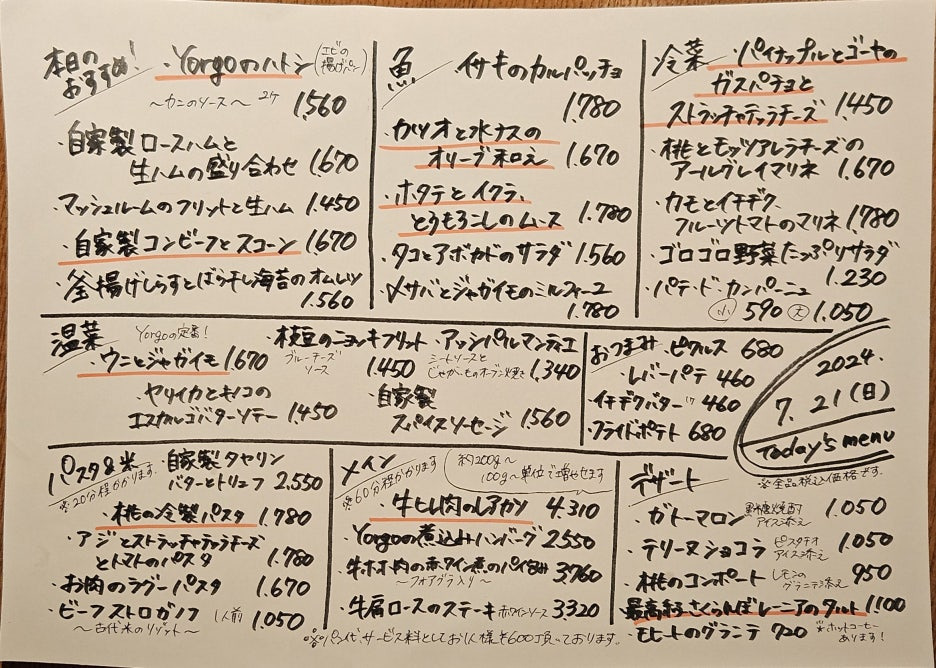 本日の
おすすめ!
・Yorgoのハトシ(エビの揚げパン)
〜カニのソース〜 2ケ 1,560
・自家製ロースハムと
生ハムの盛り合わせ 1,670
・マッシュルームのフリットと生ハム 1,450
・自家製コンビーフとスコーン 1,670
・釜揚げしらすとばら干し海苔のオムレツ
1,560
魚
・イサキのカルパッチョ
1,780
・カツオと水ナスの
オリーブ和え 1,670
・ホタテとイクラ、
とうもろこしのムース 1,780
・タコとアボカドのサラダ 1,560
・〆サバとジャガイモのミルフィーユ
1,780
冷菜
・パイナップルとゴーヤの
ガスパチョと
ストラッチャテッラチーズ 1,450
・桃とモッツアレラチーズの
アールグレイマリネ 1,670
・カモとイチヂク、
フルーツトマトのマリネ 1,780
・ゴロゴロ野菜たっぷりサラダ
1,230
・パテ・ド・カンパーニュ
小 590 大 1,050
温菜
Yorgoの定番!
・ウニとジャガイモ 1,670
・ヤリイカとキノコの
エスカルゴバターソテー 1,450
・枝豆のニョッキフリット
ブルーチーズソース 1,450
・アッシパルマンティエ
ミートソースと
じゃがいものオーブン焼き 1,340
・自家製
スパイスソーセージ 1,560
おつまみ
・ピクルス 680
・レバーパテ 460
・イチヂクバター 1ケ 460
・フライドポテト 680
2024.
7.21(日)
Today's menu
※全品税込価格です。
パスタ&米
※20分程かかります。
・自家製タヤリン
バターとトリュフ 2,550
・桃の冷製パスタ 1,780
・アジとストラッチャテッラチーズ
とトマトのパスタ 1,780
・お肉のラグーパスタ 1,670
・ビーフストロガノフ 1人前 1,050
〜古代米のリゾット〜
メイン
※60分程かかります
約200g〜
100g〜単位で増やせます
・牛ヒレ肉のレアカツ 4,310
・Yorgoの煮込みハンバーグ 2,550
・牛ホホ肉の赤ワイン煮のパイ包み 3,760
〜フォアグラ入り〜
・牛肩ロースのステーキ 赤ワインソース 3,320
※パン代、サービス料としてお1人様¥600頂いております。
デザート
・ガトーマロン 黒糖焼酎アイス添え 1,050
・テリーヌショコラ ピスタチオアイス添え 1,050
・桃のコンポート レモンのグラニテ添え 950
・最高級さくらんぼレーニアのタルト 1,100
・モヒートのグラニテ 720
※ホットコーヒー
あります!